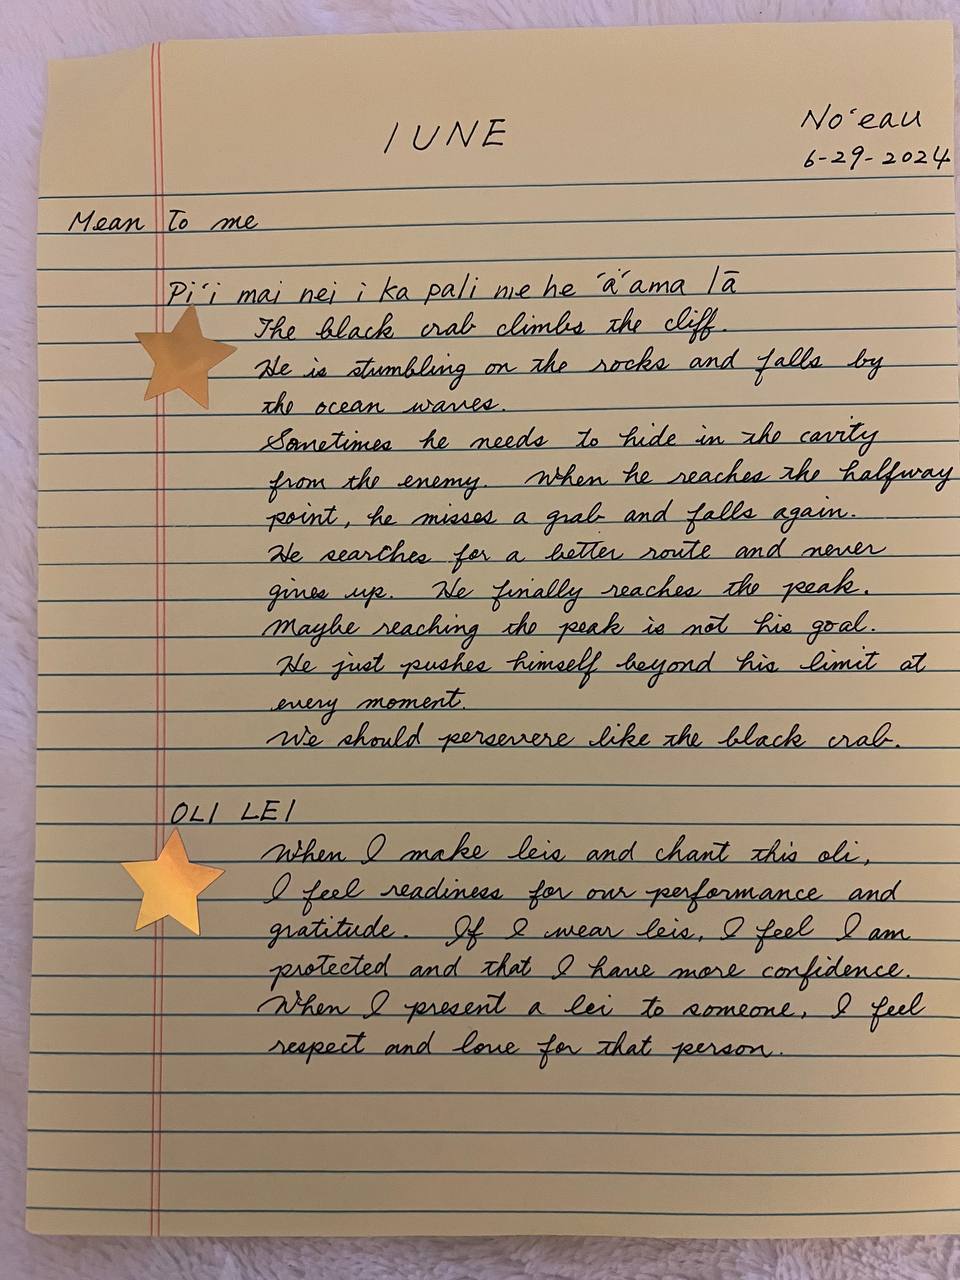 IUNE
No'eau
6-29-2024
Mean To me
Pi'i mai nei i ka pali me he 'a'ama lā
The black crab climbs the cliff.
He is stumbling on the rocks and falls by
the ocean waves.
Sometimes he needs to hide in the cavity
from the enemy. When he reaches the halfway
point, he misses a grab and falls again.
He searches for a better route and never
gives up. He finally reaches the peak.
Maybe reaching the peak is not his goal.
He just pushes himself beyond his limit at
every moment.
We should persevere like the black crab.
OLI LEI
When I make leis and chant this oli,
I feel readiness for our performance and
gratitude. If I wear leis, I feel I am
protected and that I have more confidence.
When I present a lei to someone, I feel
respect and love for that person.